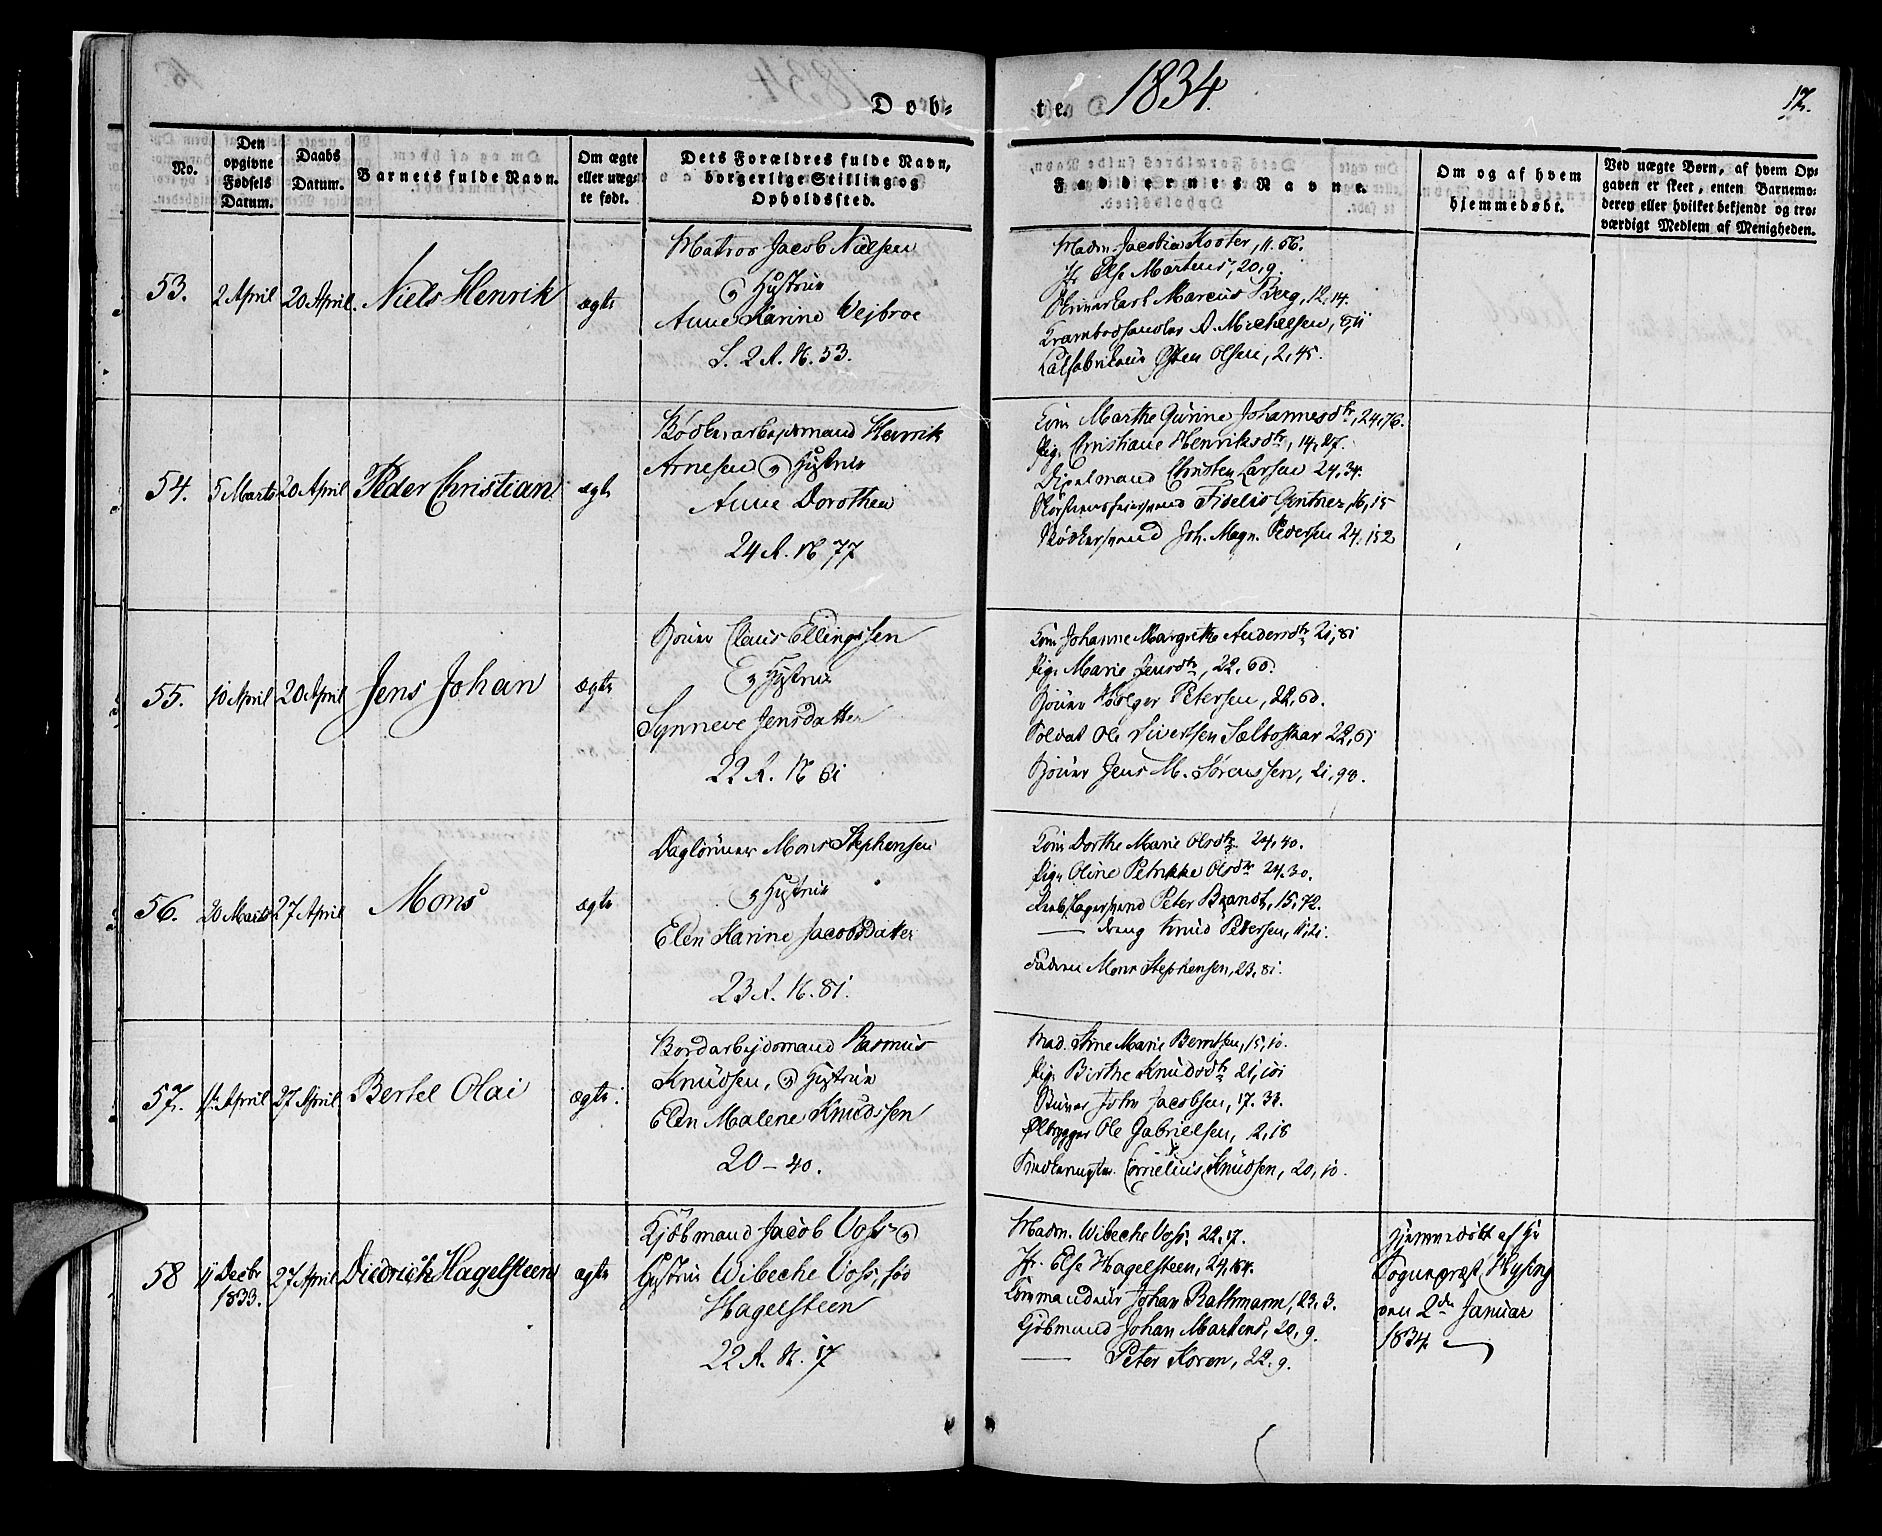 Døb-
te. 1834. 17.
No.
Den opgivne Fødsels Datum.
Daabs Datum.
Barnets fulde Navn.
Om ægte eller uæg-te født.
Dets Forældres fulde Navn, borgerlige Stilling og Opholdssted.
Faddernes Navne.
Om og af hvem hjemmedøbt.
Ved uægte Børn, af hvem Op-
gaven er skeet, enten Barnemo-
deren eller hvilket bekjendt og tro-
værdigt Medlem af Menigheden.
53. 2 April 20 April. Niels Henrik ægte
Matros Jacob Nielsen
og Hustrue
Anne Karine Vejbroe
S. 2 R. N. 53.
Madm. Jacobia Kooter, 11. 56.
Jfr. Else Martens, 20, 9.
Carl Marcus Berg, 12, 14.
A. Michelsen,
Østen Olsen, 2, 45.
54. 5 Marts 20 April Peder Christian ægte
Bødkerarbejdsmand Henrik
Arnesen og Hustrue
Anne Dorothea
24 R. N 77
Kone Marthe Gurine Johannesdtr, 24, 76.
Pige Christiane Henriksdtr, 14, 27.
Christen Larsen 24. 34.
Fidelis Gentner, 16, 15
Bødkersvend Joh. Magn. Pedersen 24. 152
55. 10 April 20 April Jens Johan ægte
Claus Ellingssen
og Hustrue
Synneve Jensdatter
22 R. N 61
Kone Johanne Margrethe Andersdtr 21, 81
Pige Marie Jensdtr, 22, 60.
Holger Petersen, 22, 60.
Soldat Ole Sivertsen Sælboskar 22, 61
Jens M. Sørenssen, 21, 98.
56. 20 Marts 27 April Mons ægte
Daglönner Mons Stephensen
og Hustrue
Elen Karine Jacobsdatter
23 R. N. 81.
Kone Dorthe Marie Olsdtr 24, 40.
Pige Oline Petrikke Olsdtr 24. 30.
Peter Brandt, 15, 72.
— dreng Knud Petersen, 11, 21.
Faderen Mons Stephensen, 23. 81.
57. 11 April 27 April Bertel Olai ægte.
Bordarbejdsmand Rasmus
Knudsen, og Hustrue
Elen Malene Knudssen
20 – 40.
Mad. Marie Berntsen, 15, 10.
Pige Birthe Knudsdtr 21, 101
John Jacobsen, 17. 33.
Ølbrygger Ole Gabrielsen, 2, 18
Cornelius Knudsen, 20, 10.
58 11 Decbr 1833. 27 April Diedrich Hagelsteen ægte
Kjöbmand Jacob Voss og
Hustrue Wibeche Voss, fød
Hagelsteen
22 R. N. 17
Madm. Wibeche Voss, 22. 17.
Jfr. Else Hagelsteen, 24, 164.
Commandeur Johan Rathmann, 23. 3.
Kjöbmand Johan Martens, 20, 9.
— Peter Koren, 22. 9.
Hjemmedöbt af Hr
Sognepræst Hysing
den 2den Januar
1834